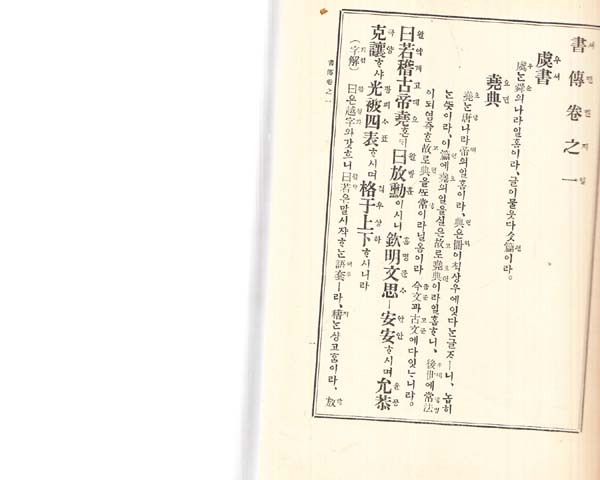 書傳卷之一
虞書
虞는舜의나라일홈이라、글이물읏다섯篇이라。
堯典
堯는唐나라帝의일홈이라、典은冊이칙상우에잇다는글ᄌᆞㅣ니、놉히
는뜻이라、이篇에堯의일을실은故로堯典이라일홈ᄒᆞ니、後世에常法
이되염즉ᄒᆞᆫ故로典을또常이라닐홈이라 今文과古文에다잇ᄂᆞ니라。
曰若稽古帝堯ᄒᆞᆫᄃᆡ曰放勳이시니欽明文思ㅣ安安ᄒᆞ시며允恭
克讓ᄒᆞ샤光被四表ᄒᆞ시며格于上下ᄒᆞ시니라
(字解) 曰은越字와갓흐니曰若은말시작ᄒᆞ는語套ㅣ라、稽는상고홈이라、放
書傳卷之一
一